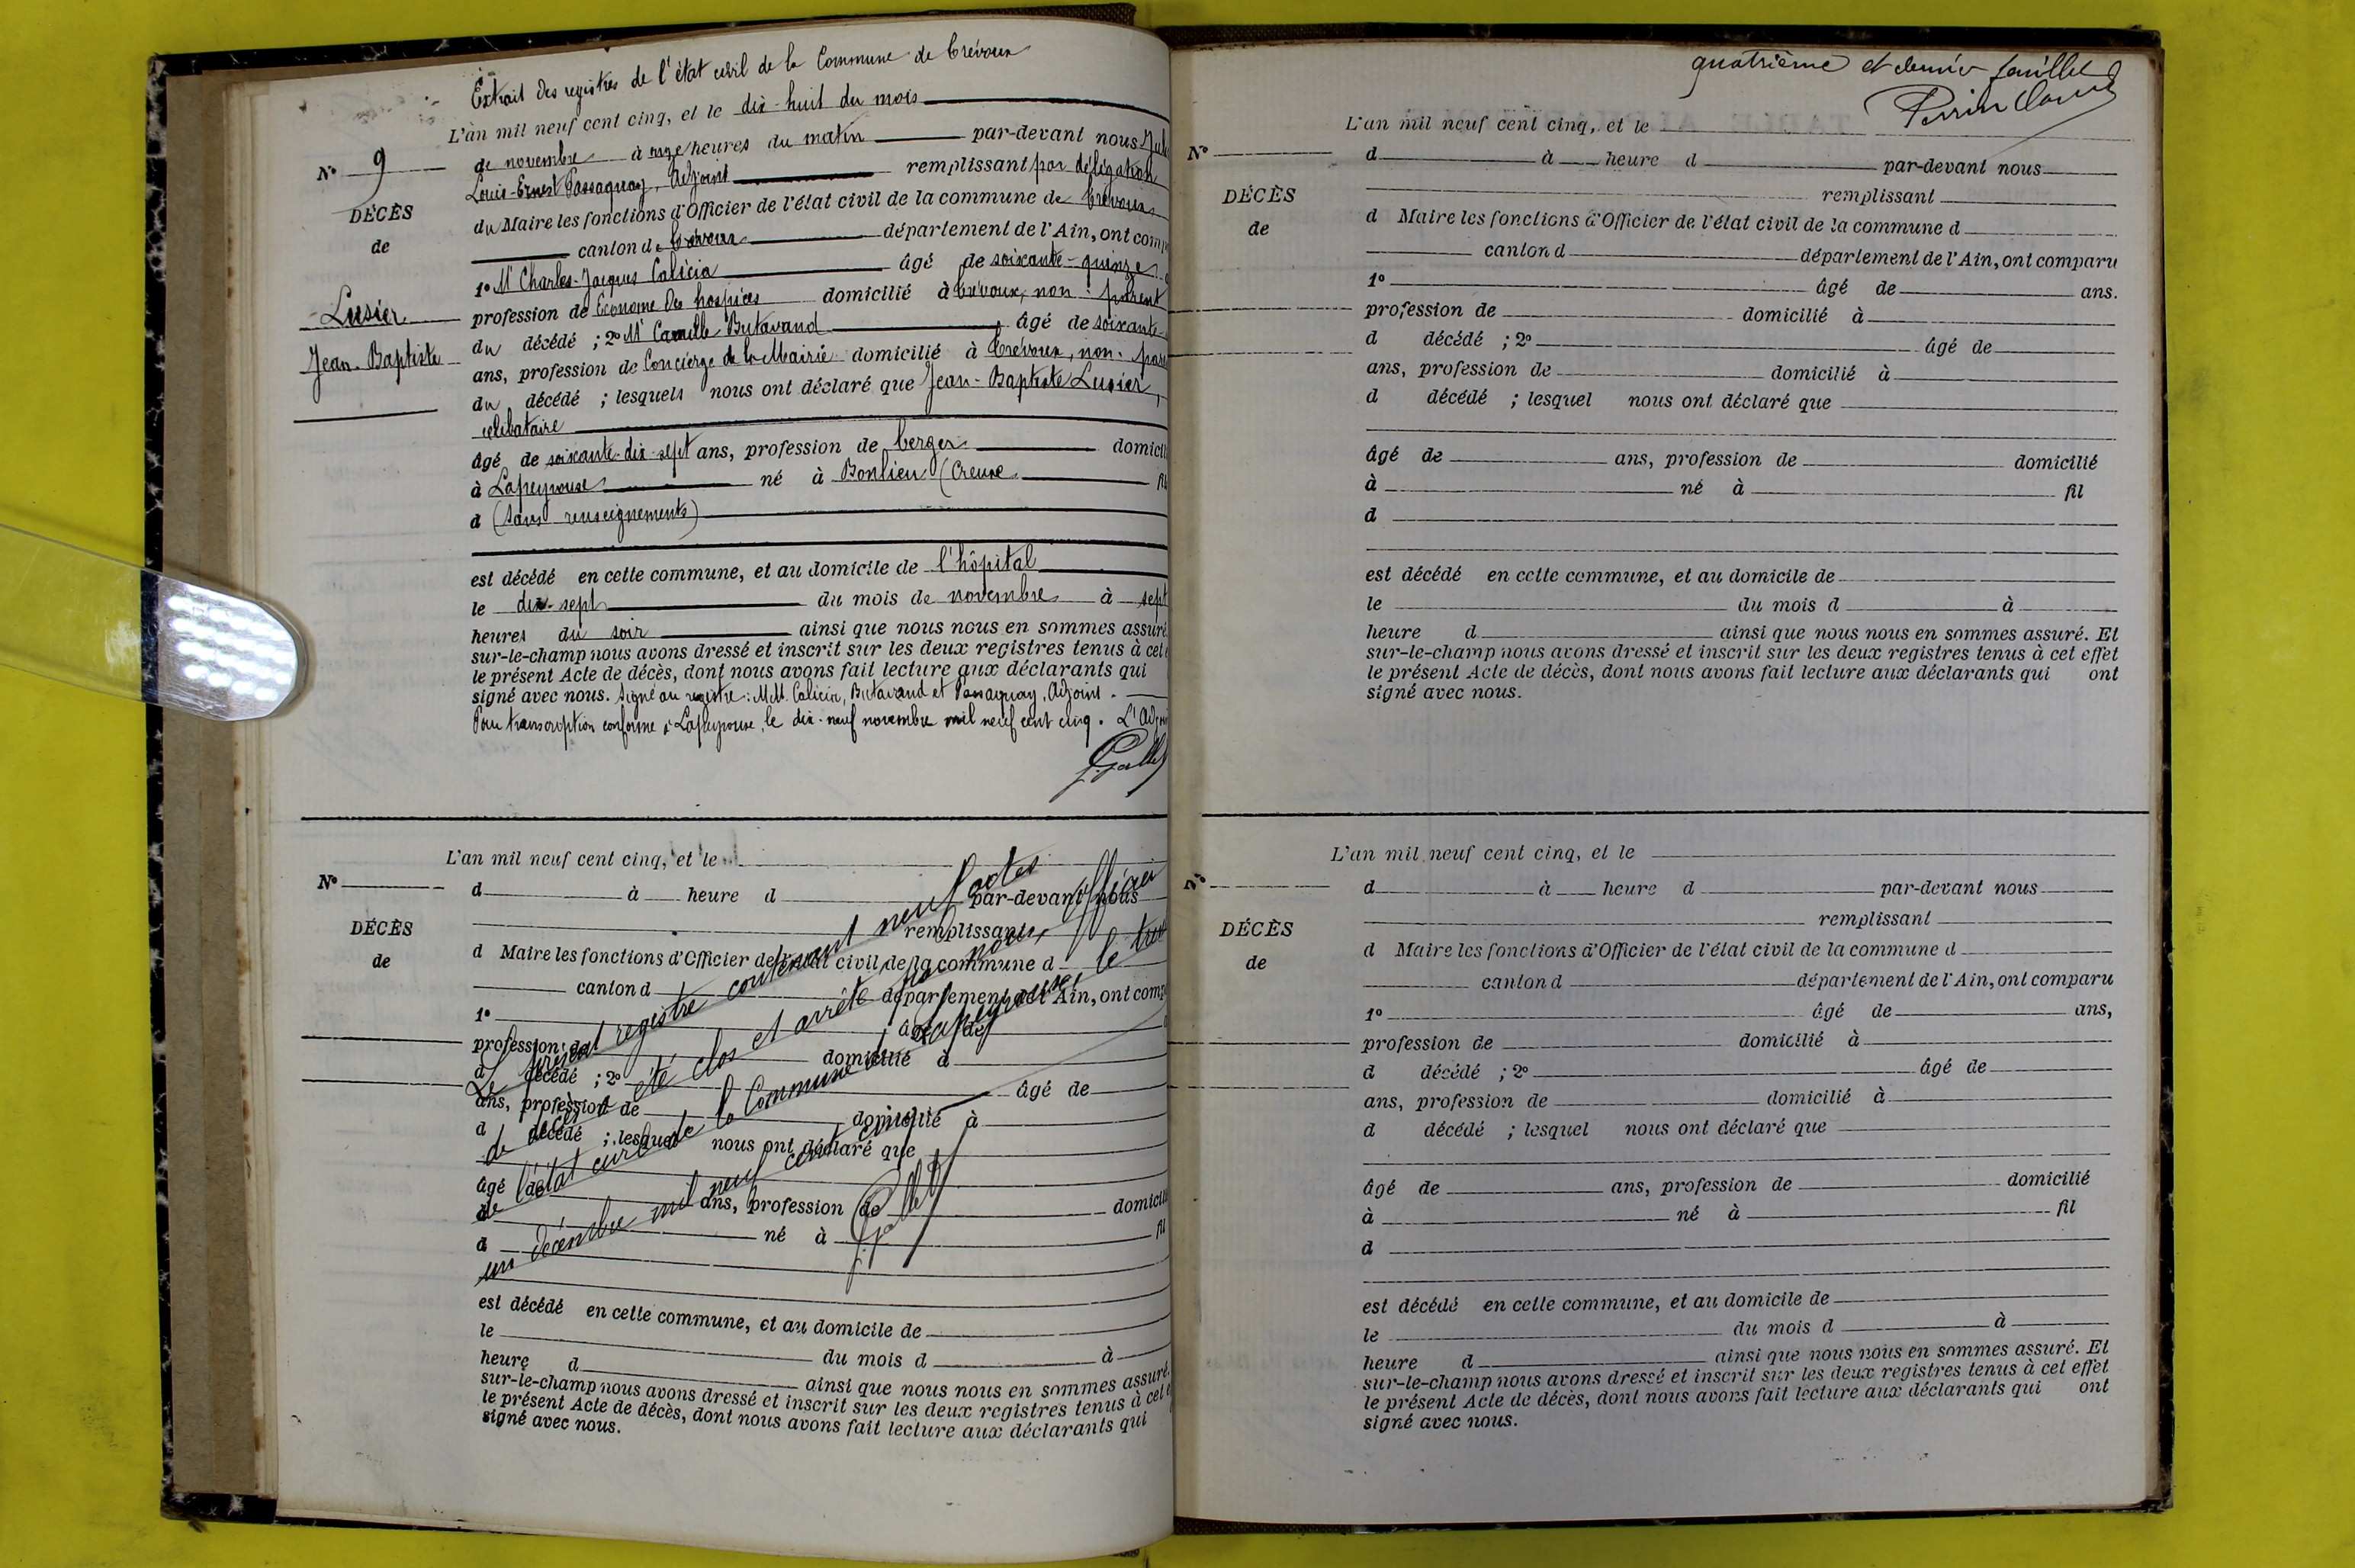 Extrait des registres de l'état civil de la Commune de Trévoux
L'an mil neuf cent cinq, et le dix-huit du mois
N° 9
de novembre à onze heures du matin par-devant nous
Louis-Ernest Passaquay, Adjoint remplissant par délégation
DÉCÈS
du Maire les fonctions d'Officier de l'état civil de la commune de Trévoux
de
canton de Trévoux département de l'Ain, ont comp
1° Mr Charles-Jacques Calicia âgé de soixante-quinze
Lusier
profession de Econome des hospices domicilié à Trévoux, non parent
du décédé ; 2° Mr Camille Butavand âgé de soixante-
Jean-Baptiste
ans, profession de Concierge de la Mairie domicilié à Trévoux, non
du décédé ; lesquels nous ont déclaré que Jean-Baptiste Lusier,
célibataire
âgé de soixante-dix-sept ans, profession de berger domicil
à Lapeyrouse né à Bonlieu (Creuse fil
d (sans renseignements)
est décédé en cette commune, et au domicile de l'hôpital
le dix-sept du mois de novembre à sept
heures du soir ainsi que nous nous en sommes assuré
sur-le-champ nous avons dressé et inscrit sur les deux registres tenus à cet e
le présent Acte de décès, dont nous avons fait lecture aux déclarants qui
signé avec nous. Signé au registre : MM. Calicia, Butavand et Passaquay, Adjoint.
Pour transcription conforme à Lapeyrouse, le dix-neuf novembre mil neuf cent cinq. L'Adj
J. Gallet
L'an mil neuf cent cinq, et le
N°
d à heure d par-devant nous
remplissant
DÉCÈS
d Maire les fonctions d'Officier de l'état civil de la commune d
de
canton d département de l'Ain, ont comp
1° âgé de
profession de domicilié à
d décédé ; 2° âgé de
ans, profession de domicilié à
d décédé ; lesquel nous ont déclaré que
âgé de ans, profession de domicilié
à né à fil
d
Le présent registre contenant neuf actes
de décès a été clos et arrêté par nous, officier
de l'état civil de la Commune de Lapeyrouse, le trente
un décembre mil neuf cent cinq
J. Gallet
est décédé en cette commune, et au domicile de
le du mois d à
heure d ainsi que nous nous en sommes assuré.
sur-le-champ nous avons dressé et inscrit sur les deux registres tenus à cet e
le présent Acte de décès, dont nous avons fait lecture aux déclarants qui
signé avec nous.
quatrième et dernier feuillet
Perrin
L'an mil neuf cent cinq, et le
N°
d à heure d par-devant nous
DÉCÈS
remplissant
de
d Maire les fonctions d'Officier de l'état civil de la commune d
canton d département de l'Ain, ont comparu
1° âgé de ans.
profession de domicilié à
d décédé ; 2° âgé de
ans, profession de domicilié à
d décédé ; lesquel nous ont déclaré que
âgé de ans, profession de domicilié
à né à fil
d
est décédé en cette commune, et au domicile de
le du mois d à
heure d ainsi que nous nous en sommes assuré. Et
sur-le-champ nous avons dressé et inscrit sur les deux registres tenus à cet effet
le présent Acte de décès, dont nous avons fait lecture aux déclarants qui ont
signé avec nous.
L'an mil neuf cent cinq, et le
N°
d à heure d par-devant nous
remplissant
DÉCÈS
d Maire les fonctions d'Officier de l'état civil de la commune d
de
canton d département de l'Ain, ont comparu
1° âgé de ans,
profession de domicilié à
d décédé ; 2° âgé de
ans, profession de domicilié à
d décédé ; lesquel nous ont déclaré que
âgé de ans, profession de domicilié
à né à fil
d
est décédé en cette commune, et au domicile de
le du mois d à
heure d ainsi que nous nous en sommes assuré. Et
sur-le-champ nous avons dressé et inscrit sur les deux registres tenus à cet effet
le présent Acte de décès, dont nous avons fait lecture aux déclarants qui ont
signé avec nous.